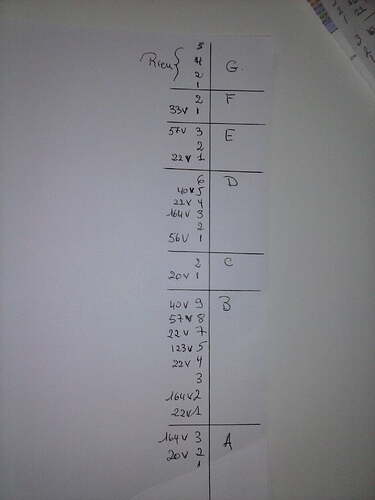 5
4
Rien { 2 G
1
2 F
33V 1
57V 3 E
2
22V 1
6 D
40V 5
22V 4
164V 3
2
56V 1
2 C
20V 1
40V 9 B
57V 8
22V 7
123V 5
22V 4
3
164V 2
22V 1
164V 3 A
20V 2
1